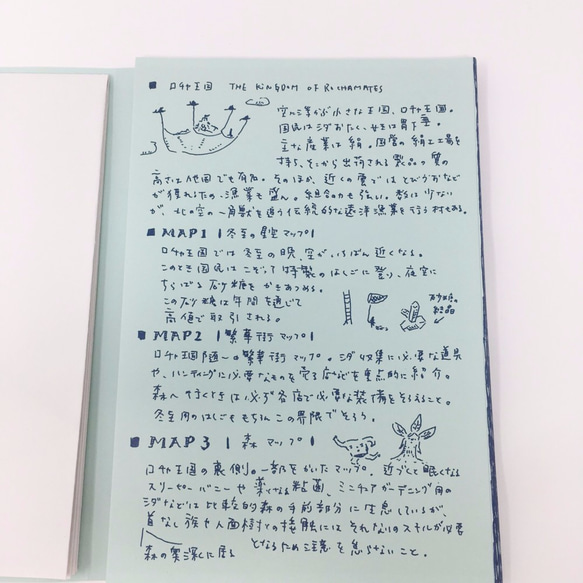 ■ ロチャ王国 THE KINGDOM OF ROCHAMATES
空に浮かぶ小さな王国、ロチャ王国。
国民はシダおたく、女王は胃下垂。
主な産業は絹。国営の絹工工場を
持ち、そこから出荷される製品の質の
高さは他国でも有名。そのほか、近くの雲ではとびうおなど
が獲れるため、漁業も盛ん。組合の力も強い。数は少ない
が、北の空の一角獣を追う伝統的な遠洋漁業を行う村もある。
■ MAP1 | 冬至の星空マップ |
ロチャ王国では冬至の晩、空がいちばん近くなる。
このとき国民はこぞって特製のはしごに登り、夜空に
ちらばる砂糖をかきあつめる。
この砂糖は年間を通じて
高値で取引される。
砂糖の
結晶
■ MAP2 | 繁華街マップ |
ロチャ王国随一の繁華街マップ。シダ収集に必要な道具
や、ハンティングに必要なものを売る店などを重点的に紹介。
森へ行くときは必ず各店で必要な装備をそろえること。
冬至用のはしごももちろんこの界隈でそろう。
■ MAP3 | 森マップ |
ロチャ王国の裏側の一部をかいたマップ。近づくと眠くなる
スリーピーバニーや薬になる粘菌、ミニチュアガーデニング用の
シダなどは比較的森の手前部分に生息しているが、
首なし族や人面樹との接触にはそれなりのスキルが必要
となるため注意を怠らないこと。
森の奥深くに居る